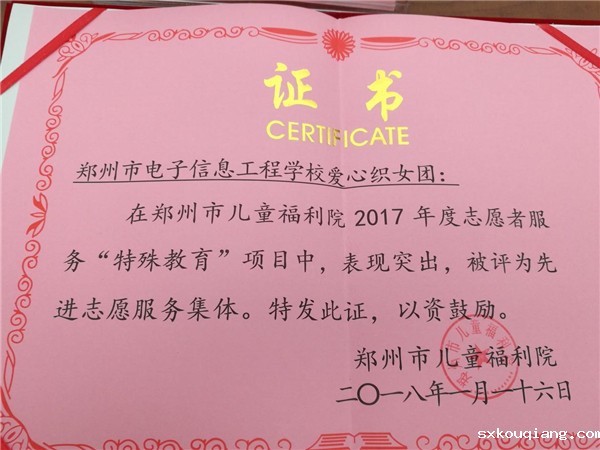 证书
CERTIFICATE
郑州市电子信息工程学校爱心织女团：
在郑州市儿童福利院 2017 年度志愿者服
务“特殊教育”项目中，表现突出，被评为先
进志愿服务集体。特发此证，以资鼓励。
郑州市儿童福利院
郑州市儿童福利院
二〇一八年一月一十六日
www.sxkouqiang.com